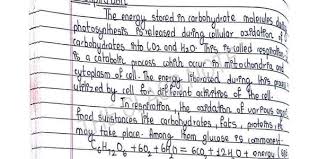 The energy stored in carbohydrate molecules
photosynthesis is released during cellular oxidation of
carbohydrates into CO2 and H2O. This is called respiration
is a catabolic process which occur in mitochondria and
cytoplasm of cell. The energy liberated during this
utilized by cell for different activities of the cell.
In respiration, the oxidation of various
food substances like carbohydrates, fats, proteins,
may take place. Among them glucose is
C6H12O6 + 6O2 + 6H2O = 6CO2 + 12H2O + energy